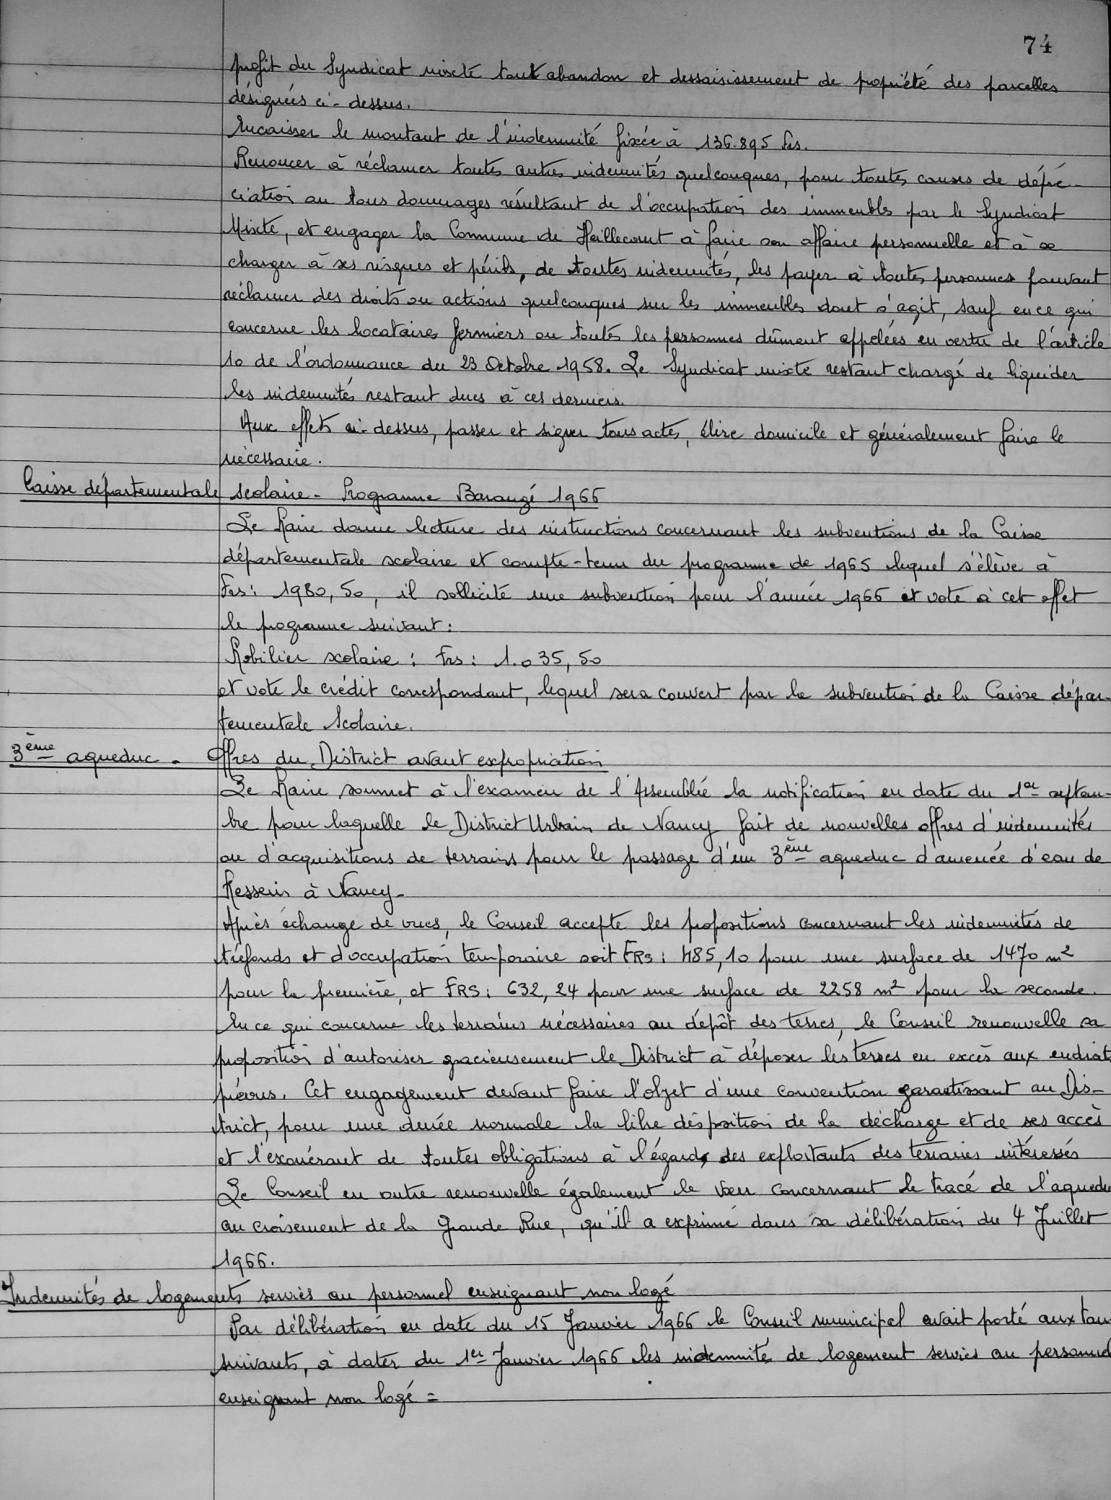 74
profit du Syndicat mixte tout abandon et dessaisissement de propriété des parcelles
désignées ci-dessus.
Encaisser le montant de l'indemnité fixée à 136.895 frs.
Renoncer à réclamer toutes autres indemnités quelconques, pour toutes causes de dépré-
ciation ou tous dommages résultant de l'occupation des immeubles par le Syndicat
Mixte, et engager la Commune de Heillecourt à faire son affaire personnelle et à se
charger à ses risques et périls, de toutes indemnités, les payer à toutes personnes pouvant
réclamer des droits ou actions quelconques sur les immeubles dont s'agit, sauf en ce qui
concerne les locataires fermiers ou toutes les personnes dûment appelées en vertu de l'article
10 de l'ordonnance du 23 Octobre 1958. Le Syndicat mixte restant chargé de liquider
les indemnités restant dues à ces derniers.
Aux effets ci-dessus, passer et signer tous actes, élire domicile et généralement faire le
nécessaire.
Caisse départementale scolaire - Programme Barangé 1966
Le Maire donne lecture des instructions concernant les subventions de la Caisse
départementale scolaire et compte-tenu du programme de 1965 lequel s'élève à
Frs: 1980,50, il sollicite une subvention pour l'année 1966 et vote à cet effet
le programme suivant:
Mobilier scolaire: Frs: 1.035,50
et vote le crédit correspondant, lequel sera couvert par la subvention de la Caisse dépar-
tementale Scolaire.
3ème aqueduc - Offres du District avant expropriation
Le Maire soumet à l'examen de l'Assemblée la notification en date du 1er septem-
bre pour laquelle le District Urbain de Nancy fait de nouvelles offres d'indemnités
ou d'acquisitions de terrains pour le passage d'un 3ème aqueduc d'amenée d'eau de
Messein à Nancy-
Après échange de vues, le Conseil accepte les propositions concernant les indemnités de
tréfonds et d'occupation temporaire soit FRS: 485,10 pour une surface de 1470 m²
pour la première, et FRS: 632,24 pour une surface de 2258 m² pour la seconde.
En ce qui concerne les terrains nécessaires au dépôt des terres, le Conseil renouvelle sa
proposition d'autoriser gracieusement le District à déposer les terres en excès aux endroits
prévus. Cet engagement devant faire l'objet d'une convention garantissant au Dis-
trict, pour une durée normale la libre disposition de la décharge et de ses accès
et l'exonérant de toutes obligations à l'égard des exploitants des terrains intéressés
Le Conseil en outre renouvelle également le voeu concernant le tracé de l'aqueduc
au croisement de la Grande Rue, qu'il a exprimé dans sa délibération du 4 Juillet
1966.
Indemnités de logements servies au personnel enseignant non logé
Par délibération en date du 15 Janvier 1966 le Conseil municipal avait porté aux taux
suivants, à dater du 1er Janvier 1966 les indemnités de logement servies au personnel
enseignant non logé =